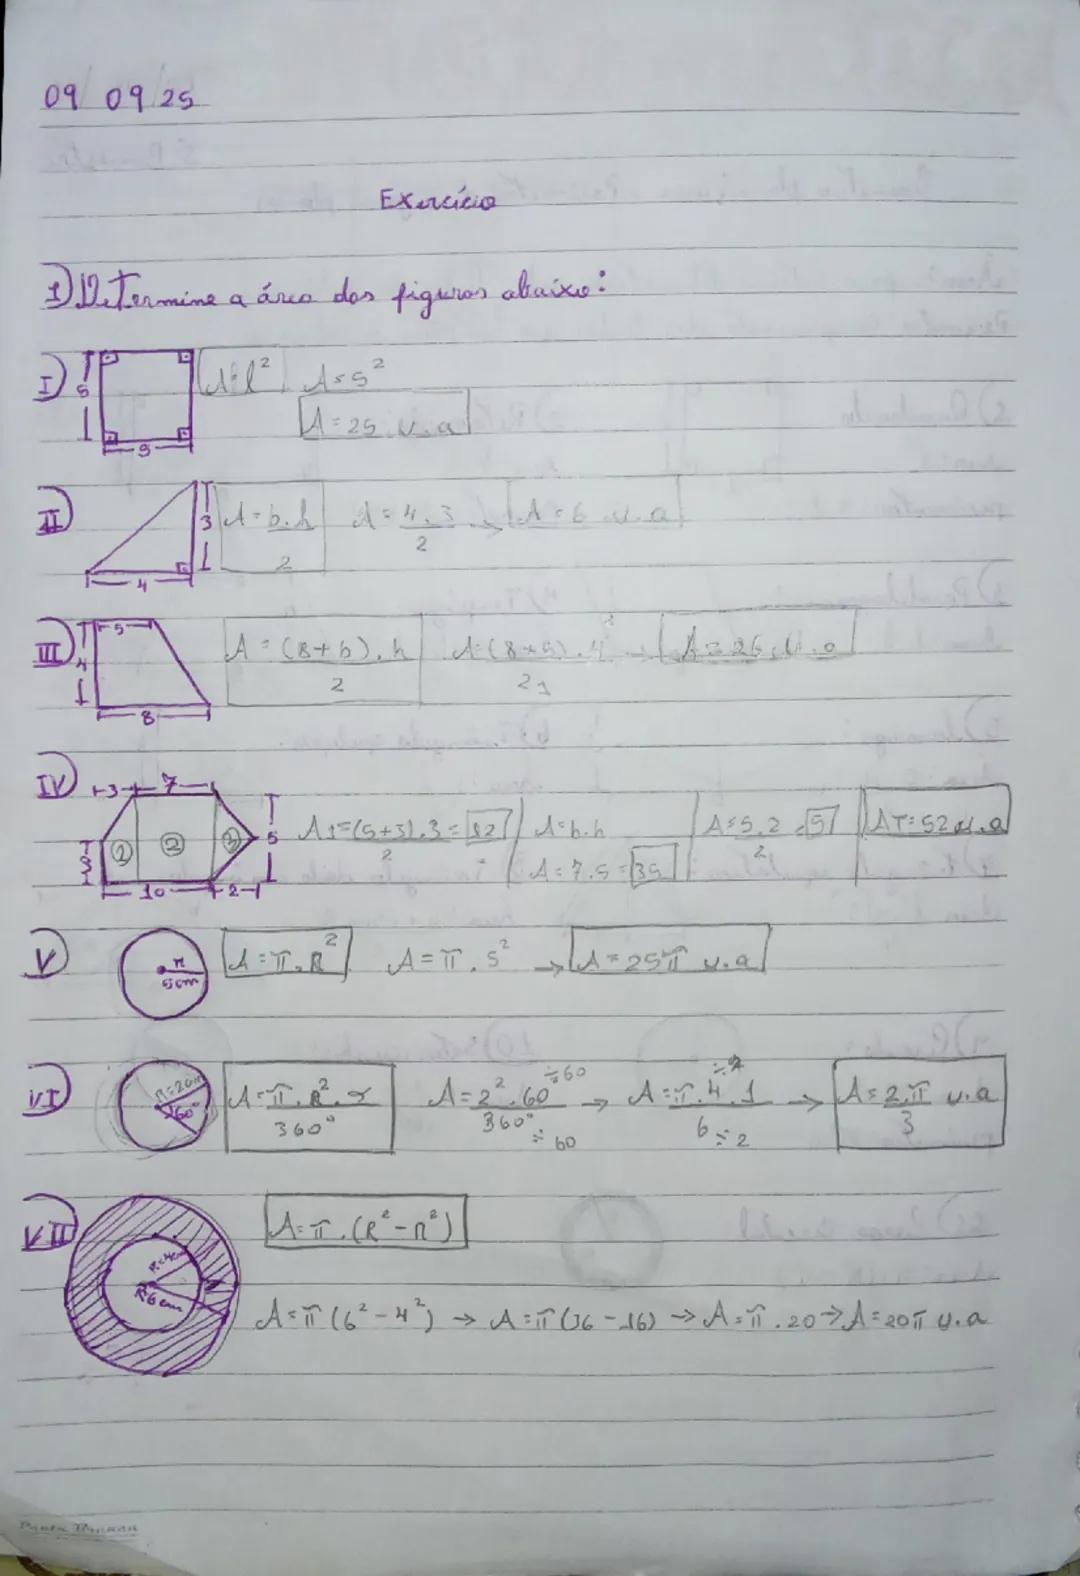 09/09/25
Exercício
1) Determine a área das figuras abaixo:
I) 5 5 A=l² A=5²
A=25 u.a
II) 3 4 A=b.h/2 A=4.3/2 → A=6 u.a
III) 5 4 8 A=(B+b).h/2 A=(8+5).4²/2 1 → A=26 u.a
IV) 3 7 5 3 10 2 1 2 3 A1=(5+3).3/2=12 A=b.h A=5.2/2=5 AT=52 u.a
A=7.5=35
V) r 5cm A=π.R² A=π.5² → A=25π u.a
VI) R=2cm 60° A=π.R².α/360° A=2².60÷60/360°÷60 → A=π.4.1÷2/6÷2 → A=2.π/3 u.a
VII) r=4cm R=6cm A=π.(R²-r²)
A=π(6²-4²) → A=π(36-16) → A=π.20 → A=20π u.a